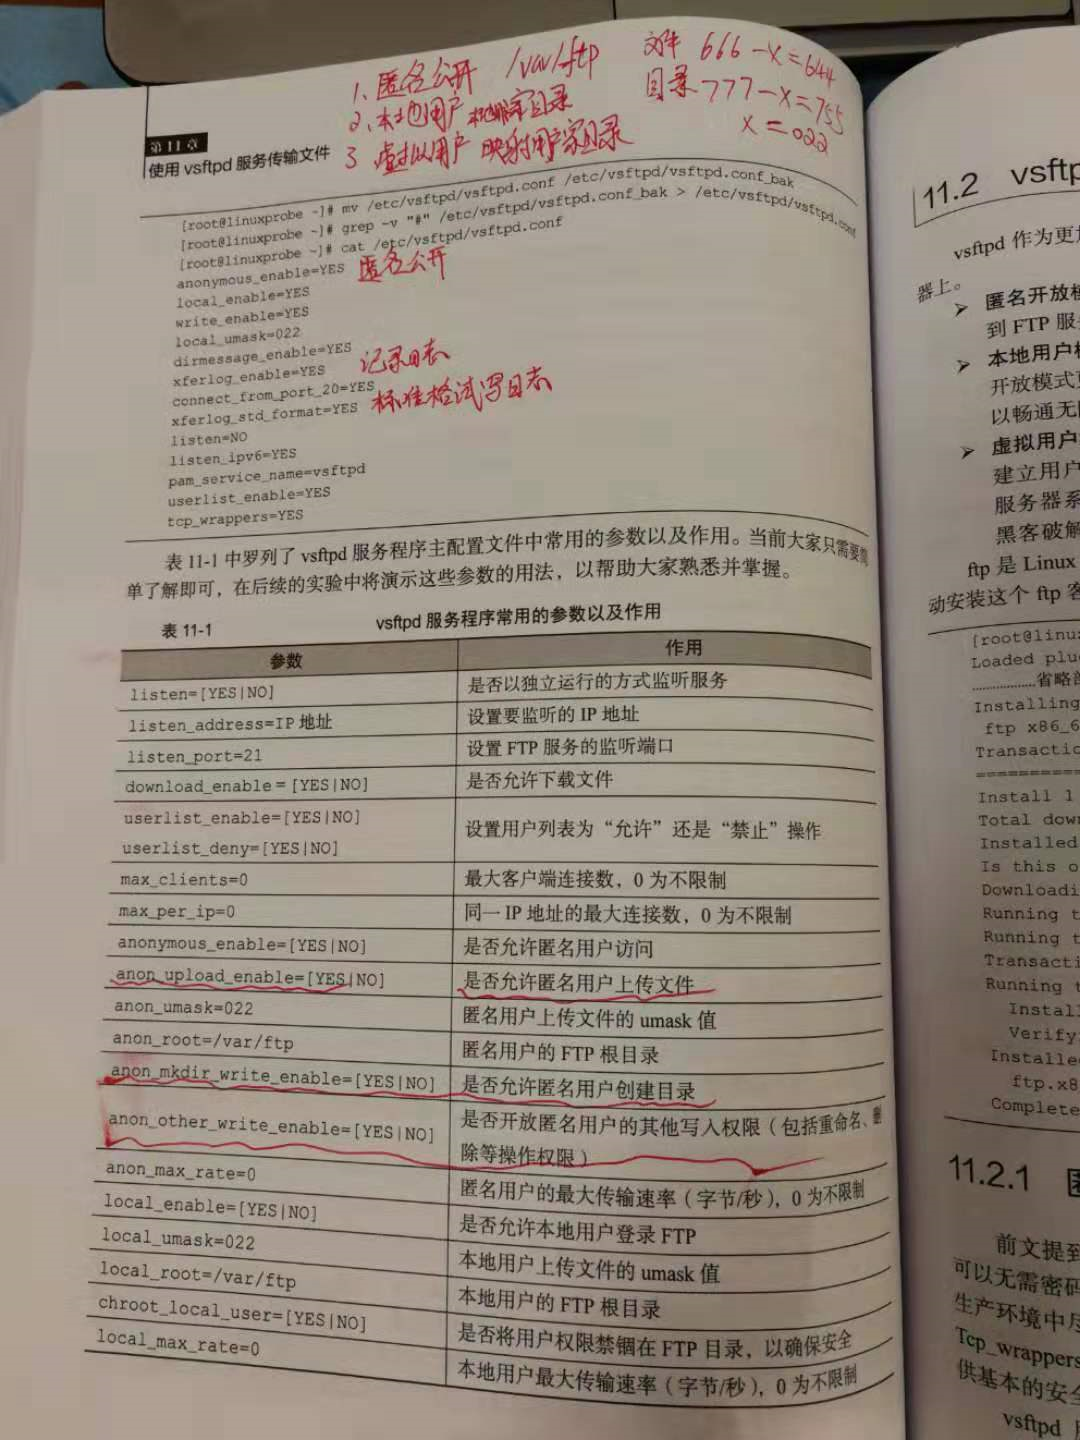 1、匿名公开 /var/ftp
2、本地用户 本地用户家目录
3 虚拟用户 映射用户家目录
文件 666-x=644
目录 777-x=755
x=022
第11章
使用 vsftpd 服务传输文件
[root@linuxprobe ~]# mv /etc/vsftpd/vsftpd.conf /etc/vsftpd/vsftpd.conf_bak
[root@linuxprobe ~]# grep -v "#" /etc/vsftpd/vsftpd.conf_bak > /etc/vsftpd/vsftpd.conf
[root@linuxprobe ~]# cat /etc/vsftpd/vsftpd.conf
anonymous_enable=YES 匿名公开
local_enable=YES
write_enable=YES
local_umask=022
dirmessage_enable=YES
xferlog_enable=YES 记录日志
connect_from_port_20=YES
xferlog_std_format=YES 标准格试写日志
listen=NO
listen_ipv6=YES
pam_service_name=vsftpd
userlist_enable=YES
tcp_wrappers=YES
表 11-1 中罗列了 vsftpd 服务程序主配置文件中常用的参数以及作用。当前大家只需要简
单了解即可，在后续的实验中将演示这些参数的用法，以帮助大家熟悉并掌握。
表 11-1 vsftpd 服务程序常用的参数以及作用
参数 作用
listen=[YES|NO] 是否以独立运行的方式监听服务
listen_address=IP 地址 设置要监听的 IP 地址
listen_port=21 设置 FTP 服务的监听端口
download_enable=[YES|NO] 是否允许下载文件
userlist_enable=[YES|NO]
userlist_deny=[YES|NO] 设置用户列表为“允许”还是“禁止”操作
max_clients=0 最大客户端连接数，0 为不限制
max_per_ip=0 同一 IP 地址的最大连接数，0 为不限制
anonymous_enable=[YES|NO] 是否允许匿名用户访问
anon_upload_enable=[YES|NO] 是否允许匿名用户上传文件
anon_umask=022 匿名用户上传文件的 umask 值
anon_root=/var/ftp 匿名用户的 FTP 根目录
anon_mkdir_write_enable=[YES|NO] 是否允许匿名用户创建目录
anon_other_write_enable=[YES|NO] 是否开放匿名用户的其他写入权限（包括重命名、删
除等操作权限）
anon_max_rate=0 匿名用户的最大传输速率（字节/秒），0 为不限制
local_enable=[YES|NO] 是否允许本地用户登录 FTP
local_umask=022 本地用户上传文件的 umask 值
local_root=/var/ftp 本地用户的 FTP 根目录
chroot_local_user=[YES|NO] 是否将用户权限禁锢在 FTP 目录，以确保安全
local_max_rate=0 本地用户最大传输速率（字节/秒），0 为不限制
11.2 vsftp
vsftpd 作为更
器上。
➢ 匿名开放
到 FTP 服
➢ 本地用户
开放模式
以畅通无
➢ 虚拟用户
建立用户
服务器系
黑客破解
ftp 是 Linux
动安装这个 ftp 客
[root@linu
Loaded plu
………………省略部
Installing
ftp x86_6
Transactio
==========
Install 1
Total down
Installed
Is this o
Downloadi
Running t
Running t
Transacti
Running t
Instal
Verify
Installe
ftp.x8
Complete
11.2.1
前文提到
可以无需密码
生产环境中尽
Tcp_wrappers
供基本的安全
vsftpd